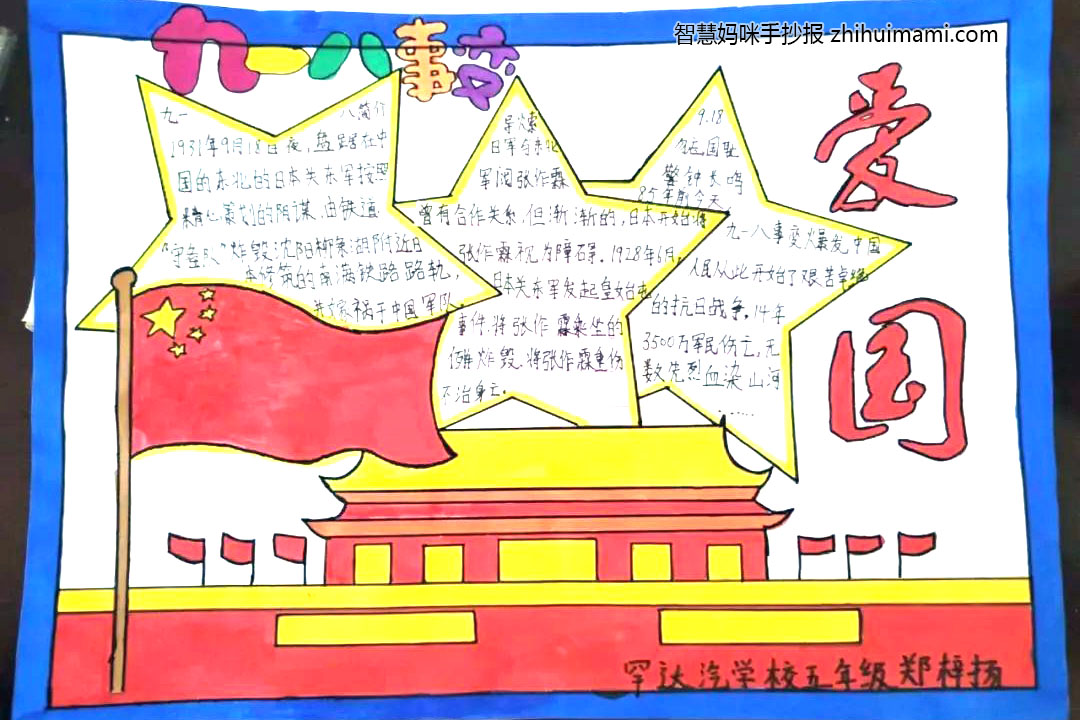 智慧妈咪手抄报 zhihuimami.com
九一八事变
九一八简介
1931年9月18日夜，盘踞在中
国的东北的日本关东军按照
精心策划的阴谋，由铁道
"守备队"炸毁沈阳柳条湖附近日
本修筑的南满铁路路轨，
并嫁祸于中国军队。
导火索
日军与东北
军阀张作霖
曾有合作关系，但渐渐的，日本开始将
张作霖视为障碍。1928年6月，
日本关东军发起皇姑屯
事件，将张作霖乘坐的
将张作霖重伤
不治身亡。
9.18
勿忘国耻
警钟长鸣
85年前今天，
九一八事变爆发，中国
人民从此开始了艰苦卓绝
的抗日战争，14年
3500万军民伤亡，无
数先烈血染山河
……
爱
国
罕达汽学校五年级郑梓扬